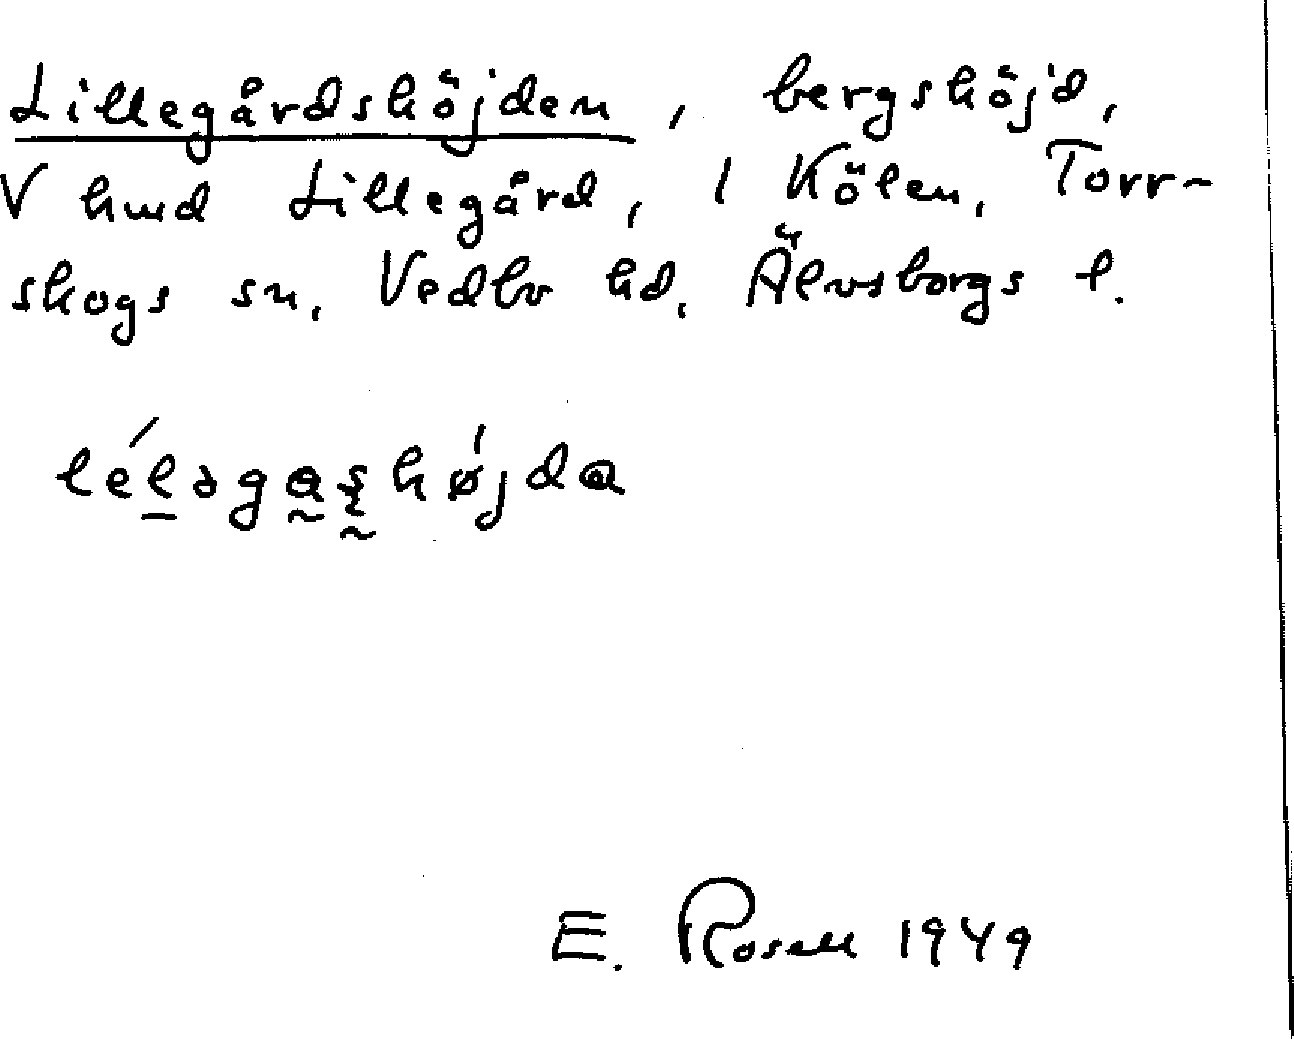 Lillegårdshöjden, bergshöjd,
V hmd Lillegård, i Kölen, Torr-
skogs sn, Vedbo hd, Älvsborgs l.
léləgɑșhøjdɑ
E. Rosell 1949